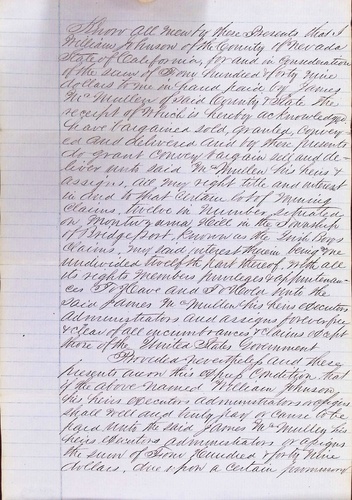 Know all men by these Presents that I
William Johnson of the County of Nevada
State of California, for and in consideration
of the sum of Four Hundred & forty nine
dollars to me in hand paid by James
McMullen of said County & State the
receipt of which is hereby acknowledged
have bargained sold, granted, convey
ed and delivered and by these presents
do grant Convey bargain sell and de-
liver unto said McMullen his heirs &
assigns, all my right title and interest
in and to that certain lot of mining
Claims, twelve in number, situated
on Montezuma Hill in the Township
of Bridgeport, known as the Irish Boys
Claims, my interest therein being one
undivided twelfth part thereof, with all
its rights members privileges & appurtenan-
ces To Have and To Hold unto the
said James McMullen his heirs executors
administrators and assigns forever free
& clear of all incumbrances & claims except
those of the United States Government
Provided nevertheless and these
presents are on this express Condition that
if the above named William Johnson
his heirs executors administrators or assigns
shall well and truly pay or cause to be
paid unto the said James McMullen his
heirs executors administrators or assigns
the sum of Four Hundred & forty nine
dollars, due upon a certain promissory